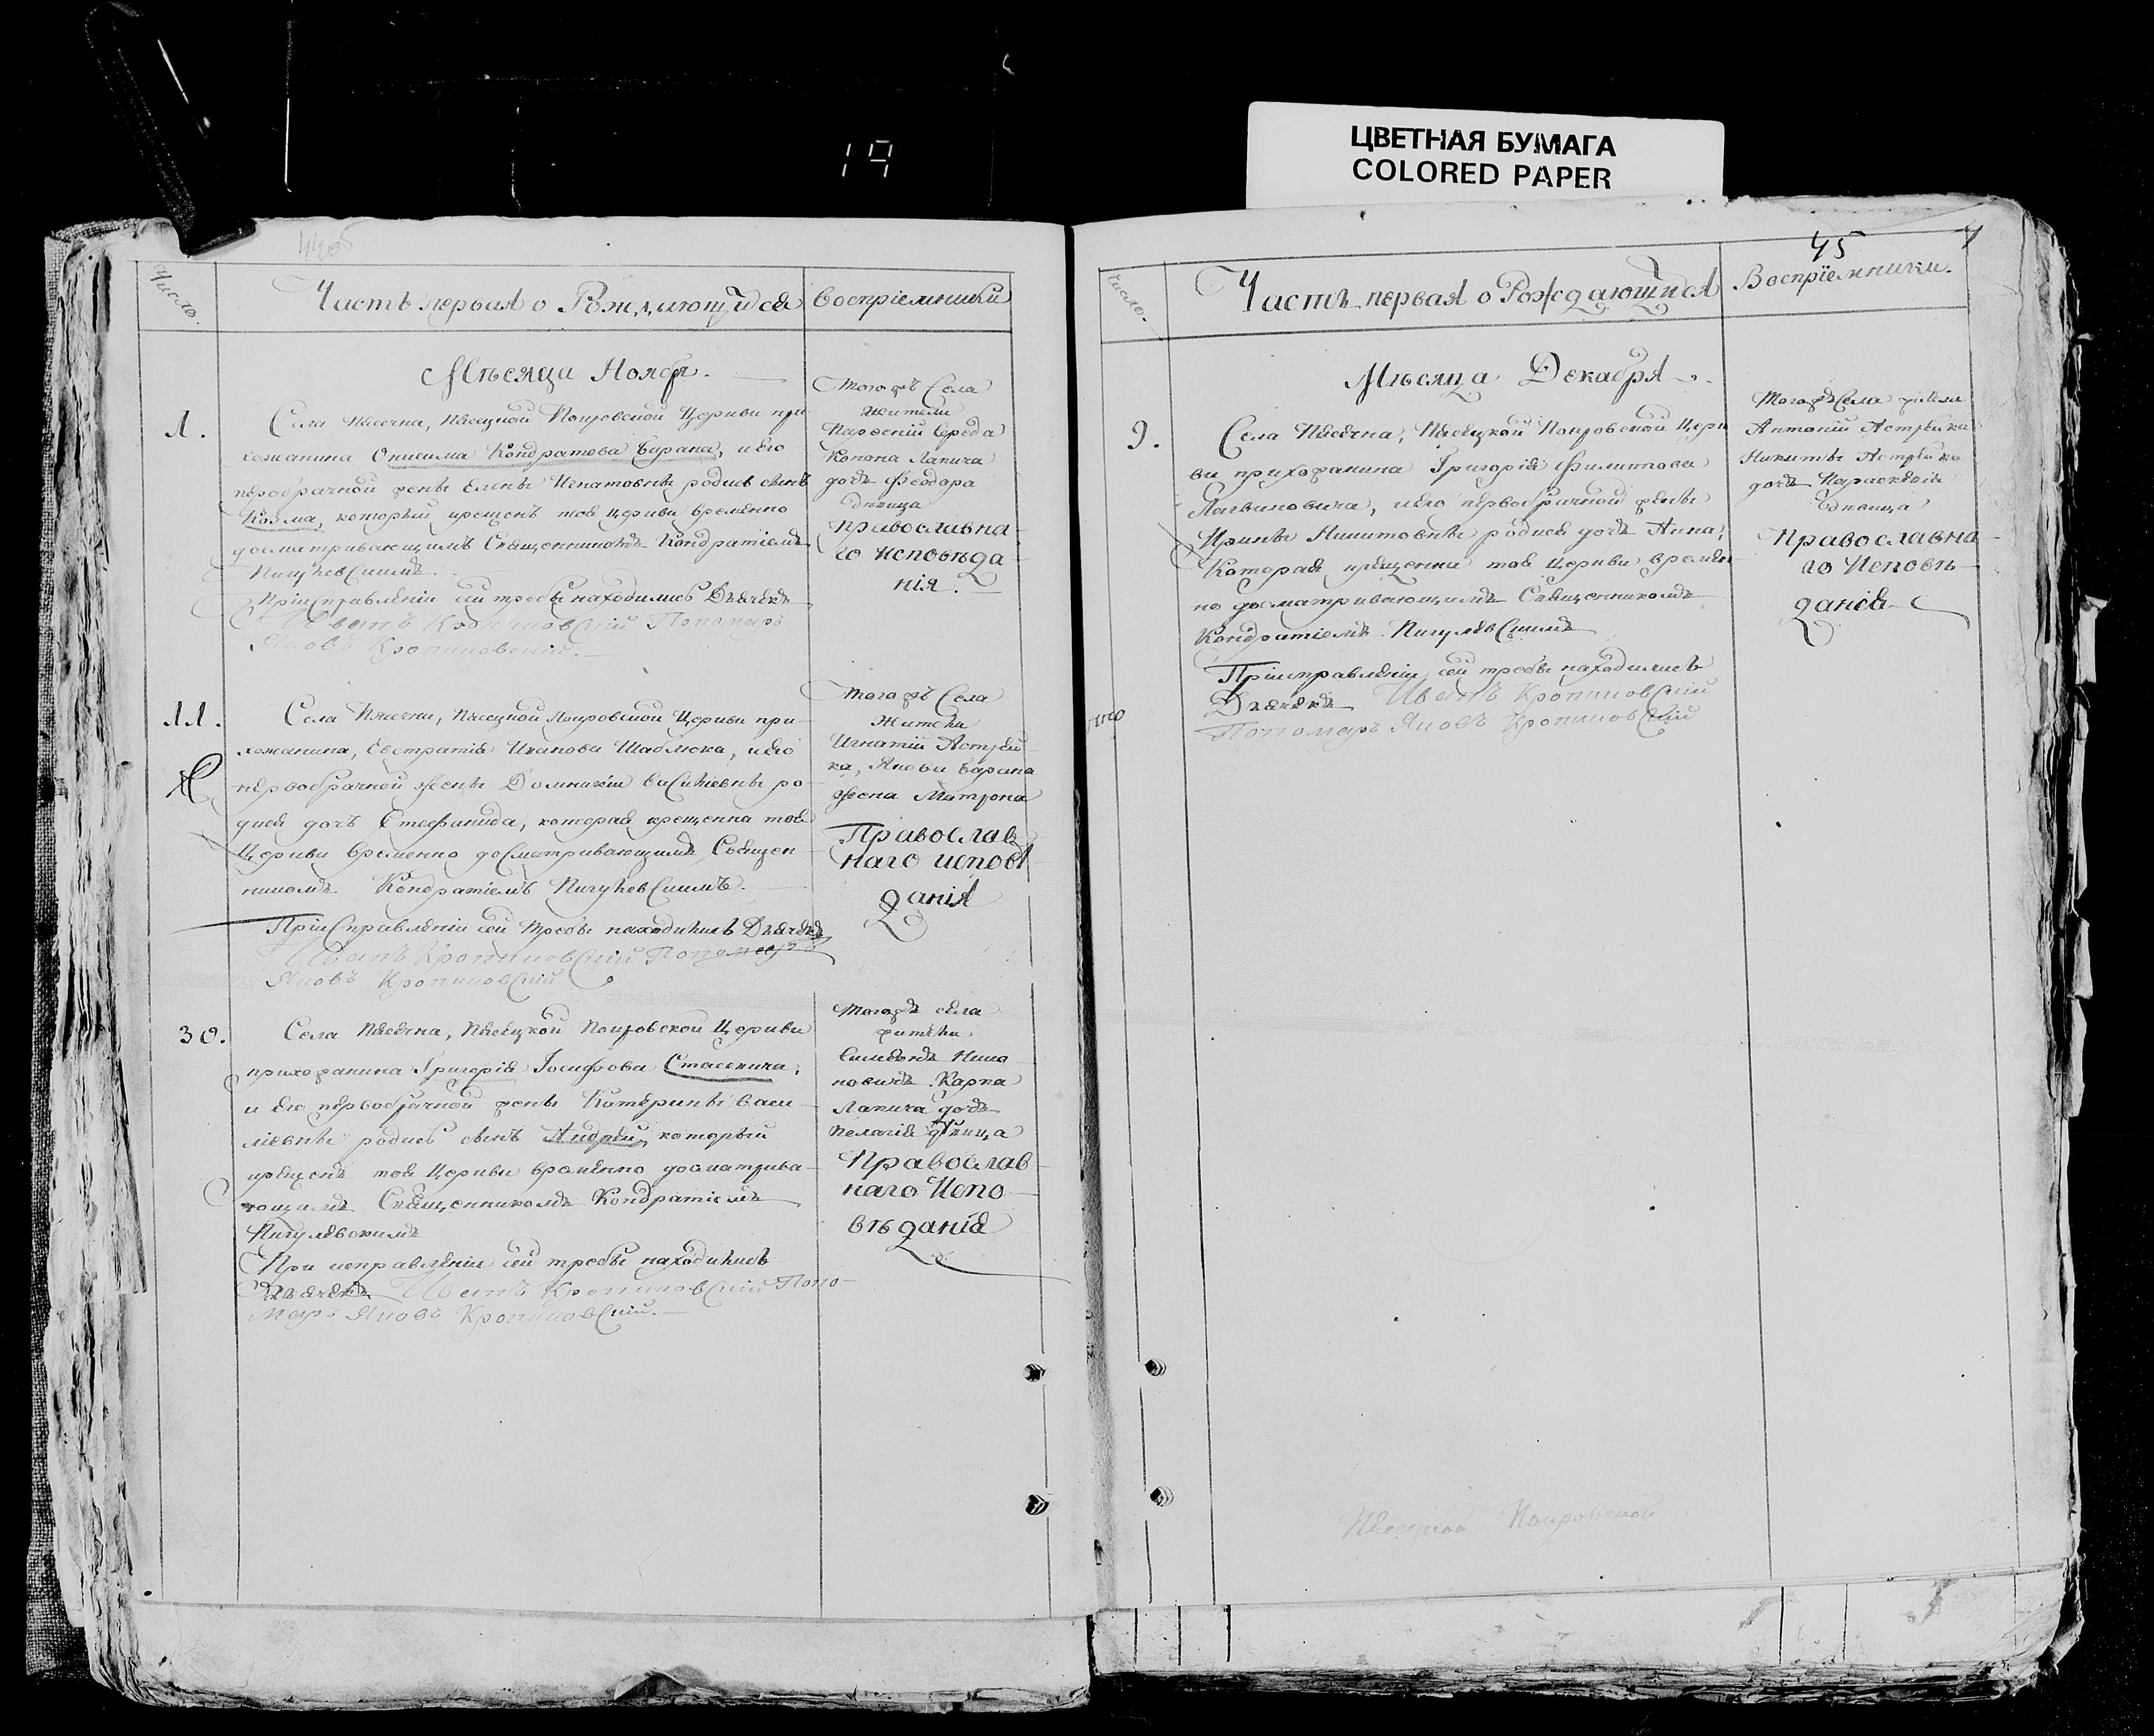 19
ЦВЕТНАЯ БУМАГА
COLORED PAPER
Число.
Часть первая о Рождающихся
Воспріемники
Мѣсяца Ноябр.
1.
Села Пясечна, Пясецкой Покровской Церкви при-
хожанина Онисима Кондратова Барана, и его
первобрачной жены Елены Игнатовны родись сынъ
Козма, который крещенъ тоя церкви временно
досматривающимъ Священникомъ Кондратіемъ
Пигулевскимъ.
При исправленіи сей требы находились Дьячекъ
Иванъ Кропиновскій Пономарь
Яковъ Кропиновскій.
тогожъ Села
жители
Парфеній Середа
Конона Лапича
дочь Феодора
дѣвица
православна-
го исповѣда-
нія.
11.
Села Пясечна, Пясецкой Покровской Церкви при-
хожанина, Евстратія Иванова Шаблюка, и его
первобрачной жены Домникіи Василіевны ро-
дися дочь Стефанида, которая крещенна тоя
Церкви временно досматривающимъ Священ-
никомъ Кондратіемъ Пигулевскимъ.
При исправленіи сей требы находились Дьячекъ
Иванъ Кропиновскій Пономарь
Яковъ Кропиновскій
тогожъ Села
жители
Игнатій Астрей-
ка, Якова Барана
жена Матрона
Православ-
наго исповѣ-
данія
30.
Села Пясечна, Пясецкой Покровской Церкви
прихожанина Григорія Іосифова Стасевича,
и его первобрачной жены Катерины Васи-
ліевны родись сынъ Андрей, который
крещенъ тоя Церкви временно досматрива-
ющимъ Священникомъ Кондратіемъ
Пигулевскимъ
При исправленіи сей требы находились
Дьячекъ Иванъ Кропиновскій Поно-
марь Яковъ Кропиновскій.
тогожъ села
жители
Симеонъ
Карпа
Лапича дочь
Пелагія дѣвица
Православ-
наго Испо-
вѣданія
45
Число.
Часть первая о Рождающихся
Воспріемники.
Мѣсяца Декабря
9.
Села Пясечна, Пясецкой Покровской Церк
ви прихожанина Григорія Филиппова
Логвиновича, и его первобрачной жены
Ирины Никитовны родися дочь Анна,
Которая крещенна тоя Церкви времен
но досматривающимъ Священникомъ
Кондратіемъ Пигулевскимъ
При исправленіи сей требы находились
Дьячекъ Иванъ Кропиновскій
Пономарь Яковъ Кропиновскій
Тогожъ Села жители
Антоній Астрейка
Никиты Астрейки
дочь Параскевія
дѣвица
Православна-
го Исповѣ-
данія
Пясецкой Покровской